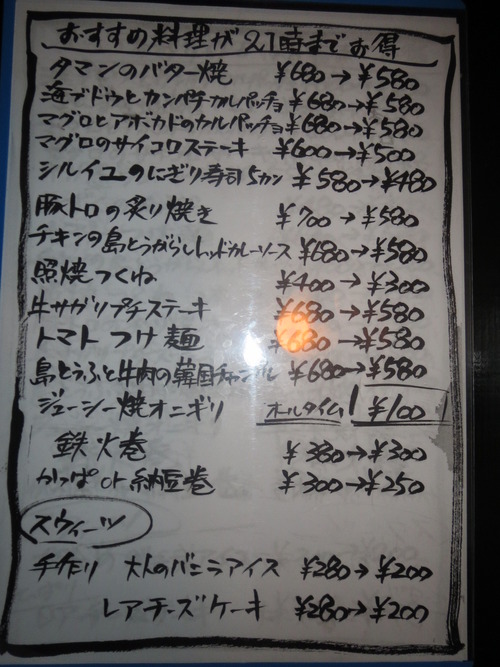 おすすめ料理が21時までお得
タマンのバター焼 ¥680→¥580
海ブドウとカンパチカルパッチョ ¥680→¥580
マグロとアボカドのカルパッチョ ¥680→¥580
マグロのサイコロステーキ ¥600→¥500
シルイユのにぎり寿司5カン ¥580→¥480
豚トロの炙り焼き ¥700→¥580
チキンの島とうがらしレッドカレーソース ¥680→¥580
照焼つくね ¥400→¥300
牛サガリプチステーキ ¥680→¥580
トマトつけ麺 ¥680→¥580
島とうふと牛肉の韓国チャンプル ¥680→¥580
ジューシー焼オニギリ オールタイム! ¥100
鉄火巻 ¥380→¥300
かっぱor納豆巻 ¥300→¥250
スウィーツ
手作り 大人のバニラアイス ¥280→¥200
レアチーズケーキ ¥280→¥200